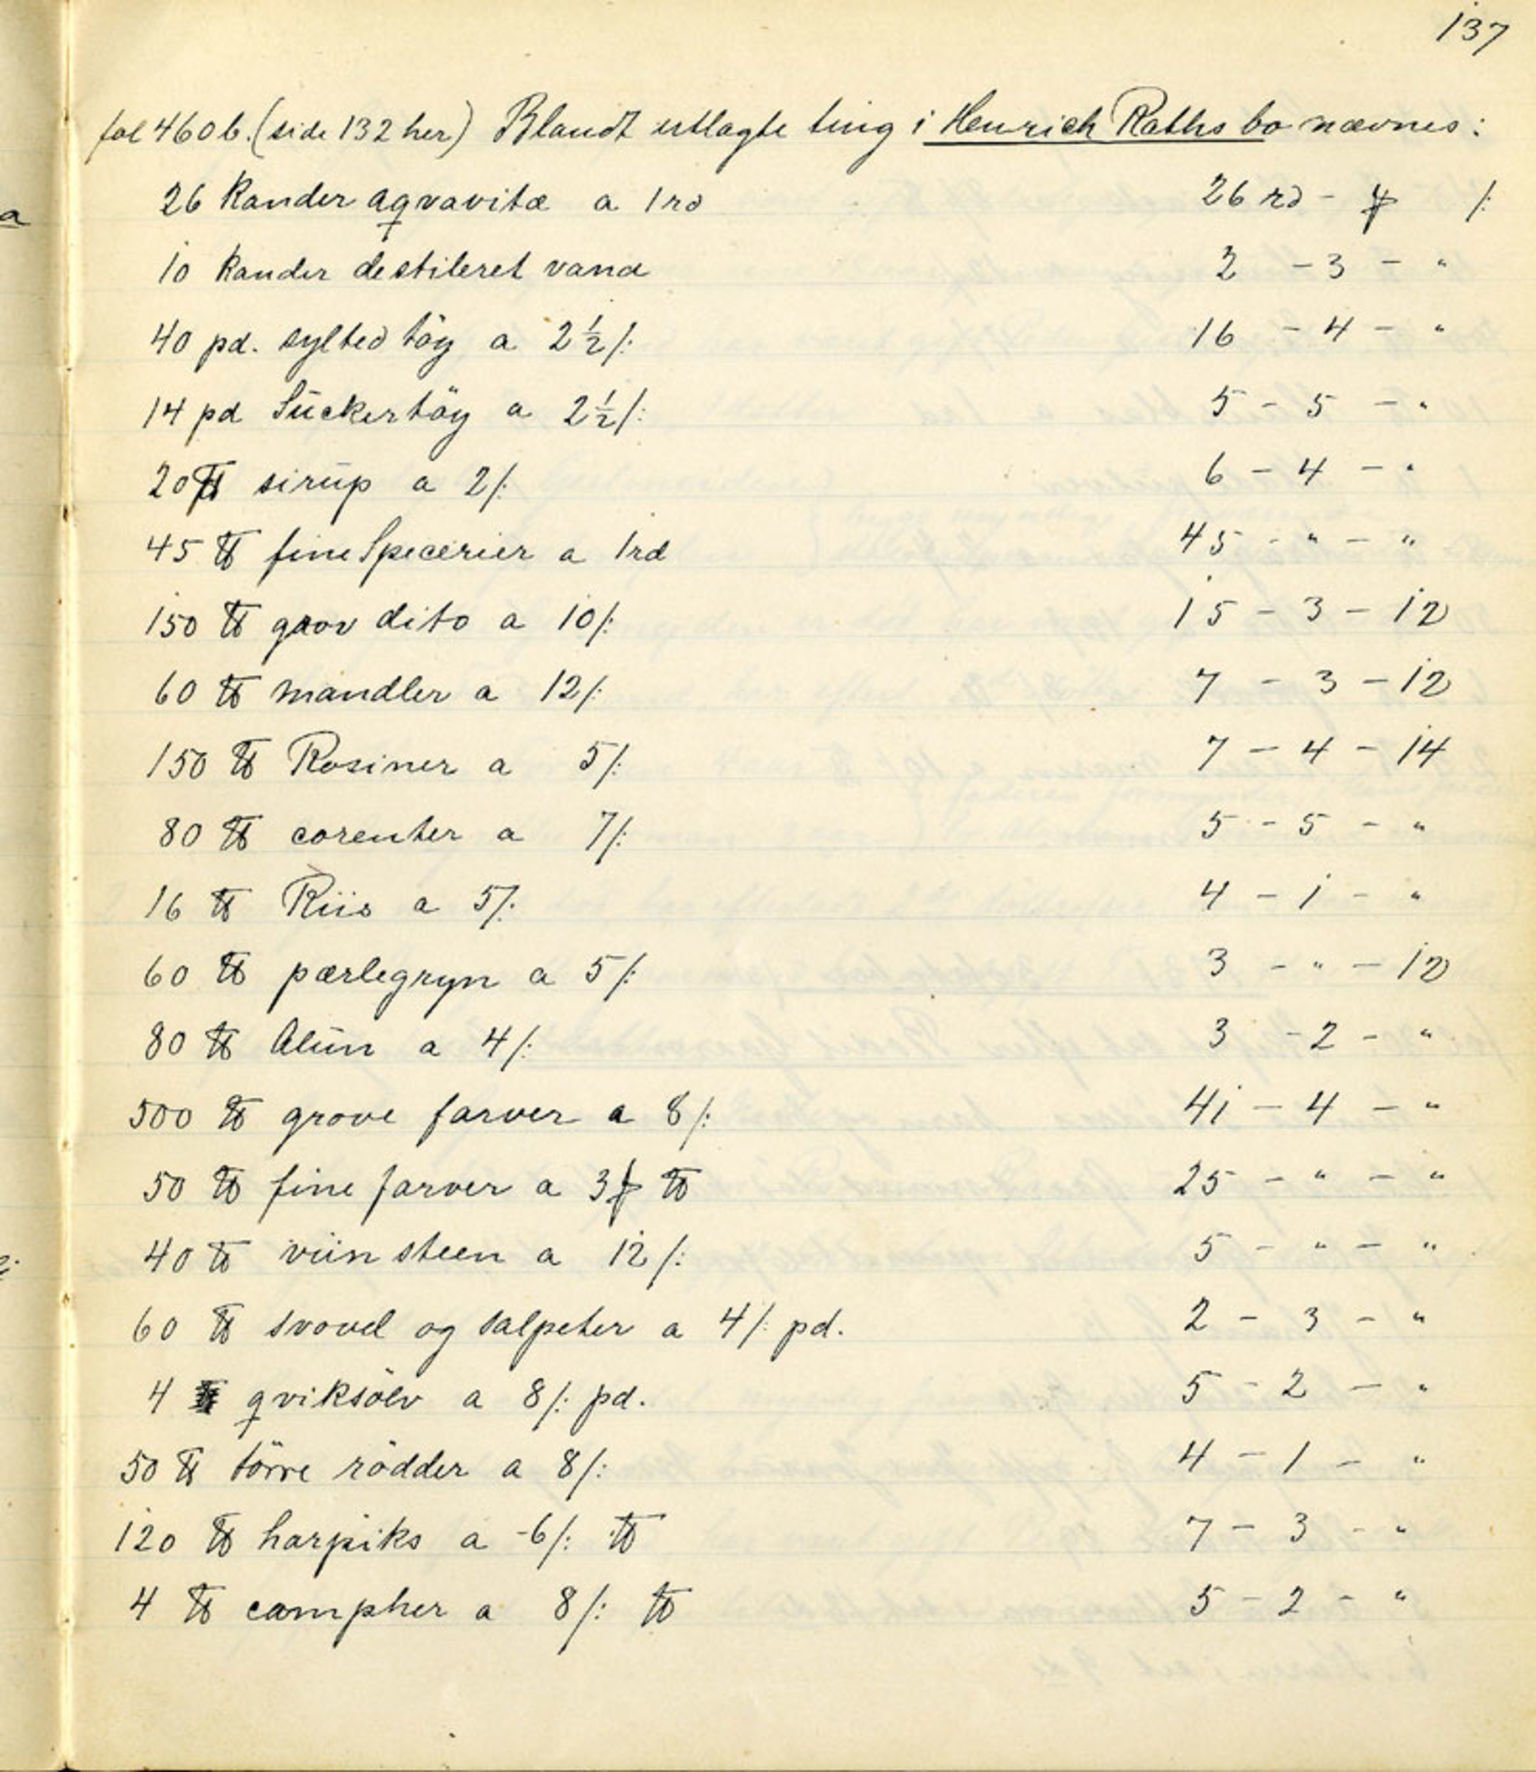 137
fol 460 b. (side 132 her) Blandt utlagte ting i Henrich Raths bo nævnes:
26 kander aqvavitæ a 1 rd 26 rd - /:
10 kander destileret vand 3 - 3 - "
40 pd. sylted töy a 2 1/2 /: 16 - 4 - "
14 pd Sūckertöy a 2 1/2 /: 5 - 5 - "
20 ℔ sirūp a 2 /: 6 - 4 - "
45 ℔ fine Specerier a 1 rd 45 - " - "
150 ℔ grov dito a 10 /: 15 - 3 - 12
60 ℔ mandler a 12 /: 7 - 3 - 12
150 ℔ Rosiner a 5 /: 7 - 4 - 14
80 ℔ corenter a 7 /: 5 - 5 - "
16 ℔ Riis a 5 /: 4 - 1 - "
60 ℔ pærlegryn a 5 /: 3 - " - 12
80 ℔ Alūn a 4 /: 3 - 2 - "
500 ℔ grove farver a 8 /: 41 - 4 - "
50 ℔ fine farver a 3 ℔ 25 - " - "
40 ℔ viinsteen a 12 /: 5 - " - "
60 ℔ svovel og salpeter a 4 /: pd. 2 - 3 - "
4 qviksölv a 8 /: pd. 5 - 2 - "
50 ℔ törre rödder a 8 /: 4 - 1 - "
120 ℔ harpiks a 6 /: ℔ 7 - 3 - "
4 ℔ campher a 8 /: ℔ 5 - 2 - "